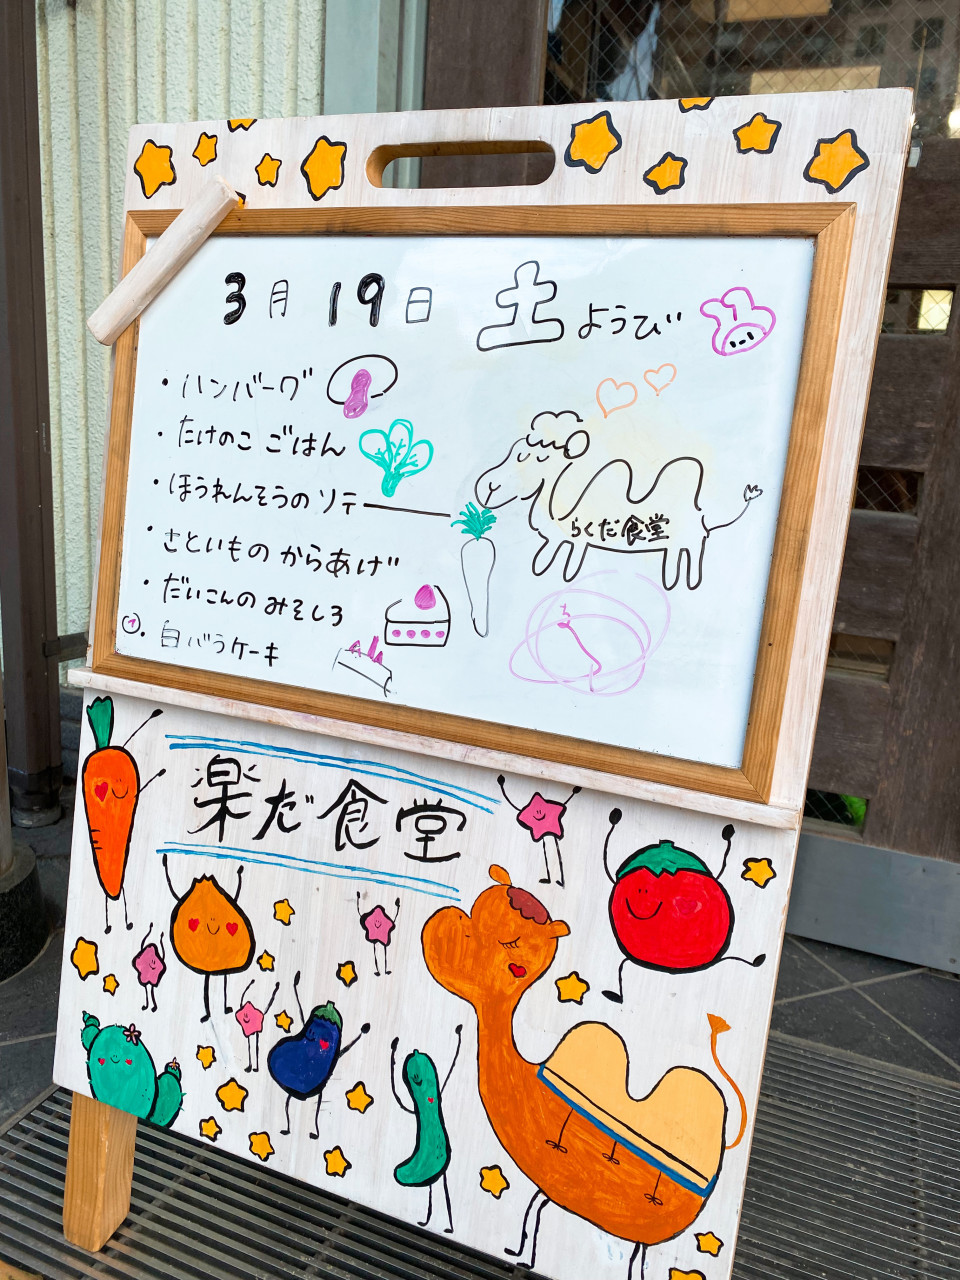 3月19日 土ようび
・ハンバーグ
・たけのこごはん
・ほうれんそうのソテー
・さといものからあげ
・だいこんのみそしる
・白バラケーキ
らくだ食堂
楽だ食堂